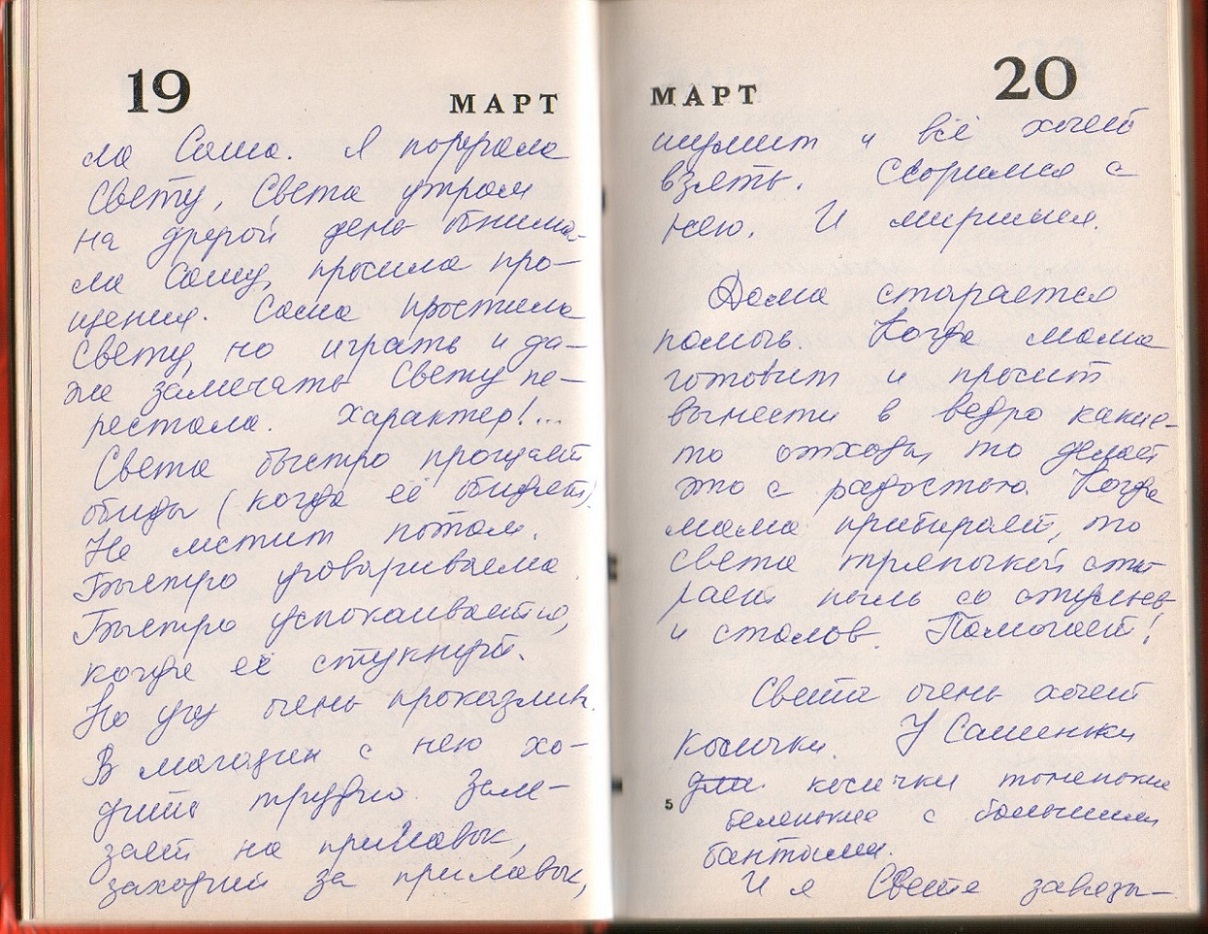 19 МАРТ
ла Саша. Я поругала
Свету, Света утром
на другой день обнима-
ла Сашу, просила про-
щения. Саша простила
Свету, но играть и да-
же замечать Свету пе-
рестала. Характер!...
Света быстро прощает
обиды (когда её обидят).
Не мстит потом.
Быстро уговариваема.
Быстро успокаивается,
когда её стукнут.
Но уж очень проказлив.
В магазин с нею хо-
дить трудно. Зале-
зает на прилавок,
заходит за прилавок,
МАРТ 20
шумит и всё хочет
взять. Ссоримся с
нею. И миримся.
Дома старается
помочь. Когда мама
готовит и просит
вынести в ведро какие-
то отходы, то делает
это с радостью. Когда
мама прибирает, то
Света тряпочкой сти
рает пыль со стульев
и столов. Помогает!
Света очень хочет
косички. У Сашеньки
5
косички тоненькие
беленькие с большими
бантами.
И я Свете завязы-